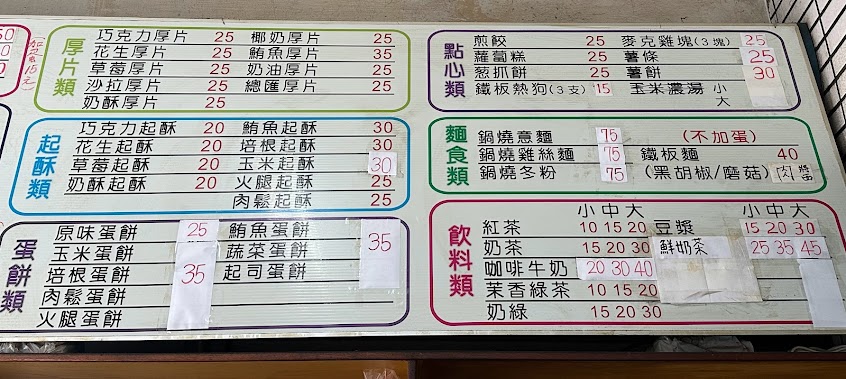 厚片類
巧克力厚片 25 椰奶厚片 25
花生厚片 25 鮪魚厚片 35
草莓厚片 25 奶油厚片 25
沙拉厚片 25 總匯厚片 25
奶酥厚片 25
起酥類
巧克力起酥 20 鮪魚起酥 30
花生起酥 20 培根起酥 30
草莓起酥 20 玉米起酥 30
奶酥起酥 20 火腿起酥 25
肉鬆起酥 25
蛋餅類
原味蛋餅 25 鮪魚蛋餅 35
玉米蛋餅 35 蔬菜蛋餅
培根蛋餅 起司蛋餅
肉鬆蛋餅
火腿蛋餅
點心類
煎餃 25 麥克雞塊(3塊) 25
蘿蔔糕 25 薯條 25
葱抓餅 25 薯餅 30
鐵板熱狗(3支) 15 玉米濃湯 小
大
麵食類
鍋燒意麵 75 (不加蛋)
鍋燒雞絲麵 75 鐵板麵 40
鍋燒冬粉 75 (黑胡椒/蘑菇) 肉醬
飲料類
小 中 大 小 中 大
紅茶 10 15 20 豆漿 15 20 30
奶茶 15 20 30 鮮奶茶 25 35 45
咖啡牛奶 20 30 40
茉香綠茶 10 15 20
奶綠 15 20 30